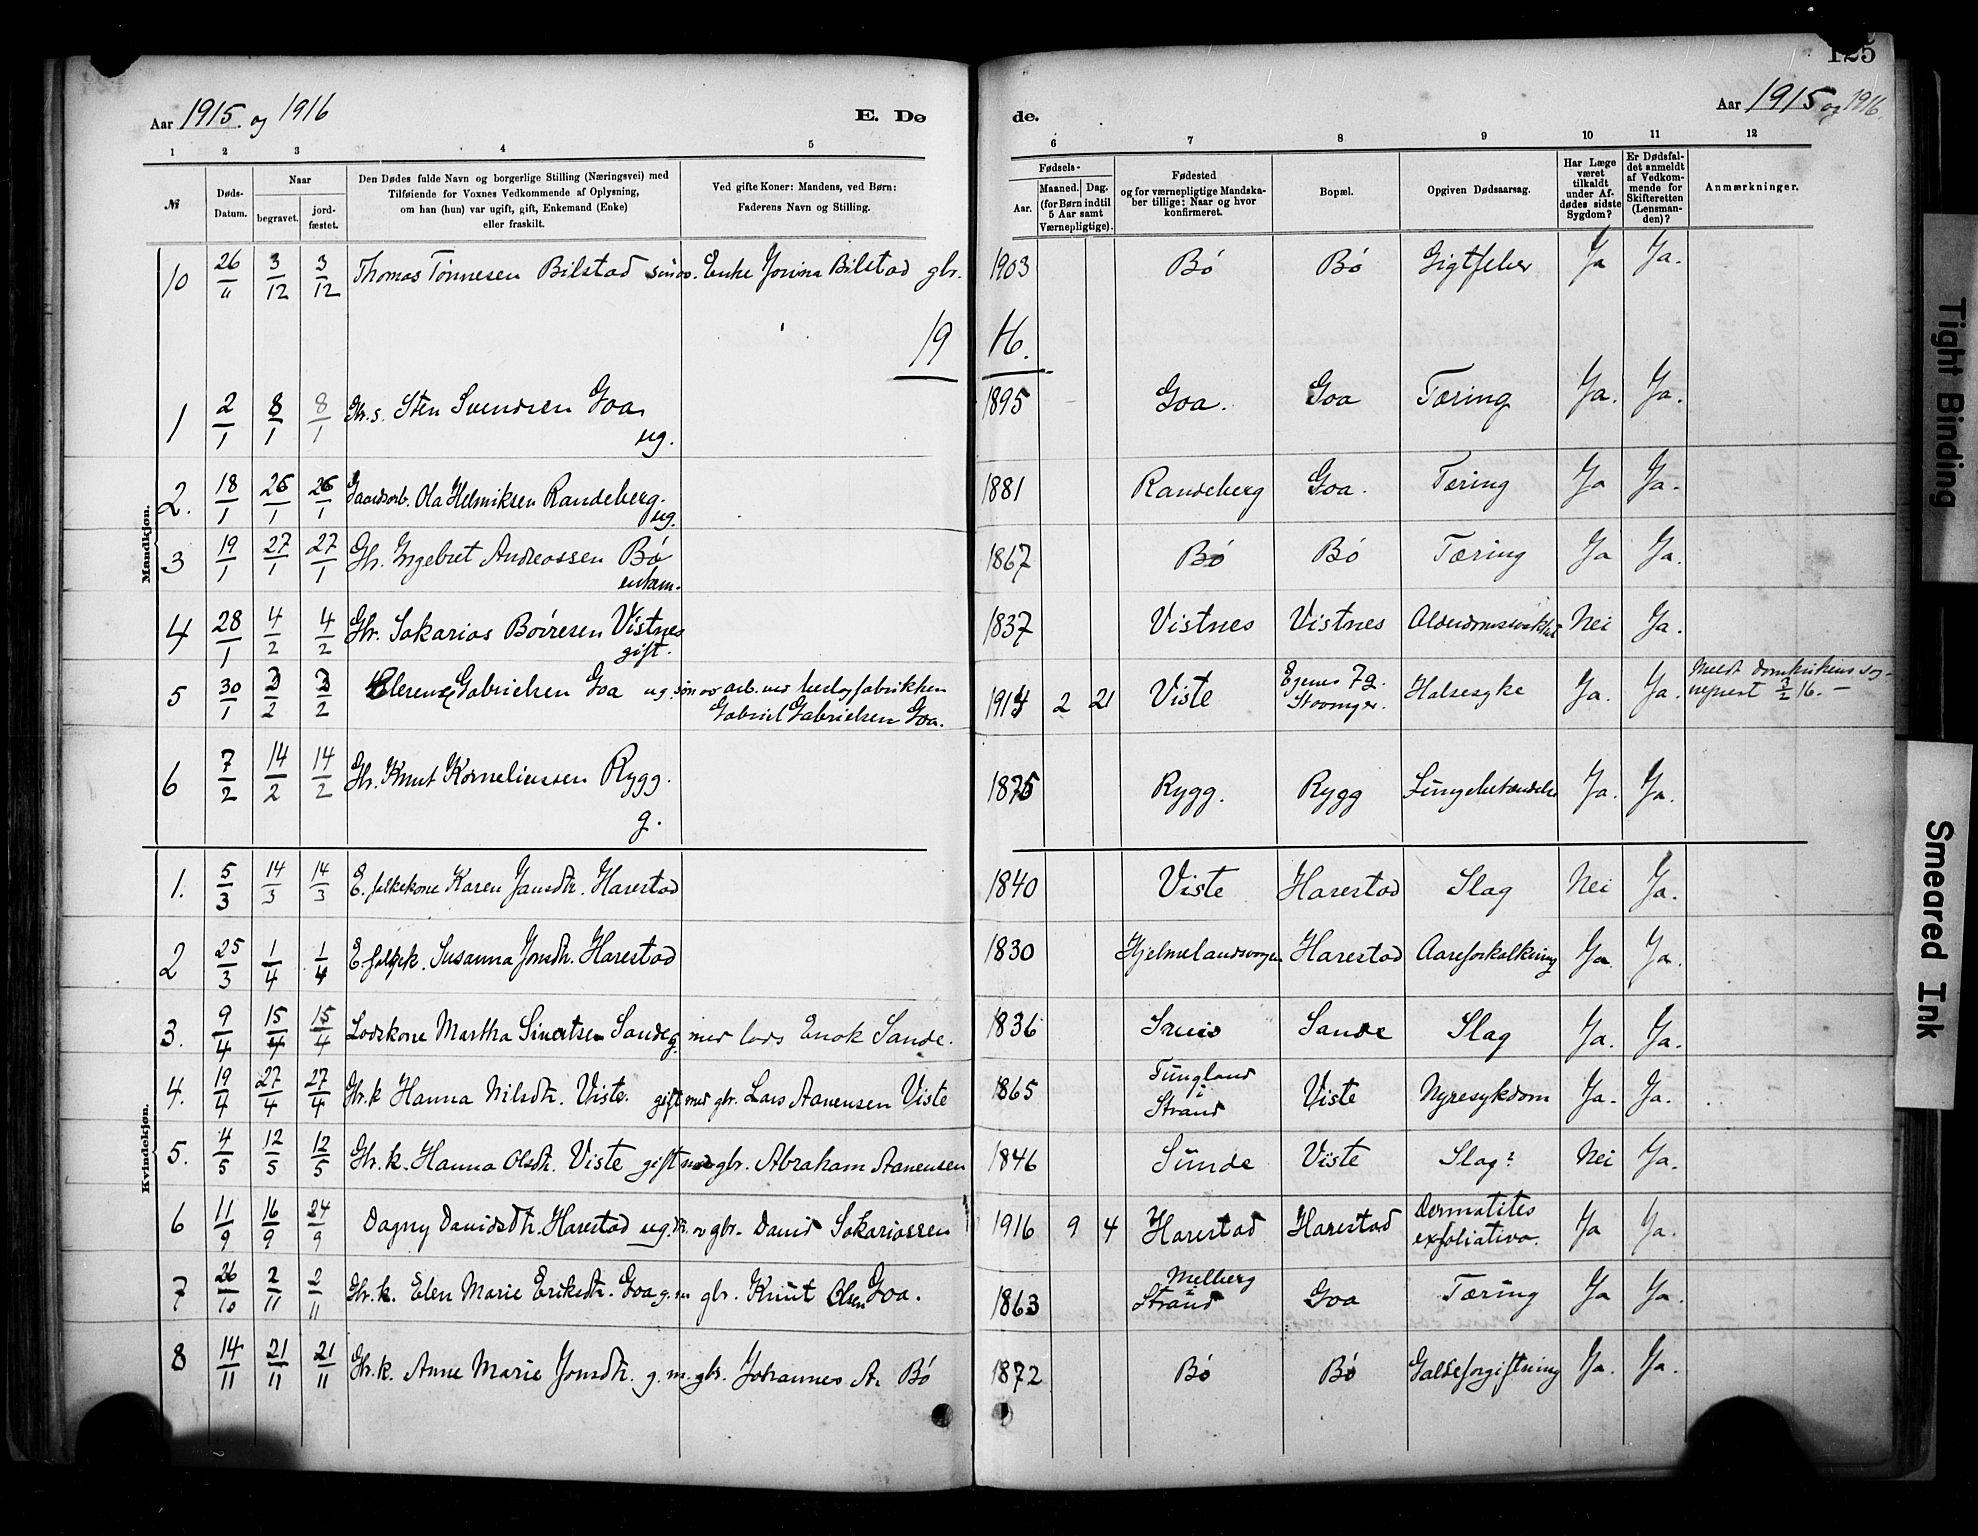 125
Aar 1915 og 1916 E. Dø de. Aar 1915 og 1916.
1 2 3 4 5 6 7 8 9 10 11 12
№ Døds-Datum. Naar begravet. jordfæstet. Den Dødes fulde Navn og borgerlige Stilling (Næringsvei) med Tilføiende for Voxnes Vedkommende af Oplysning, om han (hun) var ugift, gift, Enkemand (Enke) eller fraskilt. Ved gifte Koner: Mandens, ved Børn: Faderens Navn og Stilling. Fødsels- Aar. Maaned. Dag. (for Børn indtil 5 Aar samt Værnepligtige). Fødested og for værnepligtige Mandskaber tillige: Naar og hvor konfirmeret. Bopæl. Opgiven Dødsaarsag. Har Læge været tilkaldt under Afdødes sidste Sygdom? Er Dødsfaldet anmeldt af Vedkommende for Skifteretten (Lensmanden)? Anmærkninger.
Mandkjøn.
10 26/11 3/12 3/12 Thomas Tønnesen Bilstad søn av. Enke Jorina Bilstad gbr. 1903 Bø Bø Gigtfeber Ja Ja.
19 16.
1 2/1 8/1 8/1 Gbr. s. Sten Svendsen Goa ug. 1895 Goa. Goa Tæring Ja. Ja.
2. 18/1 26/1 26/1 Gaardsarb. Ola Helmiksen Randeberg. ug. 1881 Randeberg Goa. Tæring Ja Ja.
3 19/1 27/1 27/1 Gbr. Ingebret Andreassen Bø enkem. 1867 Bø Bø Tæring Ja Ja.
4 28/1 4/2 4/2 Gbr. Sakarias Børresen Vistnes gift. 1837 Vistnes Vistnes Alderdomssvakhet Nei Ja.
5 30/1 2/2 2/2 Gabrielsen Goa ug. søn av arb. ved Gabriel Gabrielsen Goa. 1914 2 21 Viste Egenes 7 g. Stavanger. Halsesyke Ja. Ja. Meldt Domkirkens sogneprest 3/2 16. —
6 7/2 14/2 14/2 Gbr. Knut Korneliussen Rygg. g. 1875 Rygg. Rygg Lungebetændelse Ja. Ja.
Kvindekjøn.
1. 5/3 14/3 14/3 E. folkekone Karen Jansdtr. Harestad 1840 Viste Harestad Slag Nei Ja.
2 25/3 1/4 1/4 E. Susanna Jonsdtr. Harestad 1830 Hjelmelandsvogen Harestad Aareforkalkning Ja. Ja.
3. 9/4 15/4 15/4 Lodskone Martha Sivertsen Sande g. med lods Enok Sande. 1836 Sande Slag Ja. Ja.
4. 19/4 27/4 27/4 Gbr. k Hanna Nilsdtr. Viste. gift med gbr. Lars Aanensen Viste 1865 Tungland i Strand Viste Nyresykdom Ja. Ja.
5. 4/5 12/5 12/5 Gbr. k. Hanna Olsdtr. Viste gift med gbr. Abraham Aanensen 1846 Sunde Viste Slag? Nei Ja.
6 11/9 16/9 24/9 Dagny Davidsdtr. Harestad ug. dtr. av gbr. David Sakariassen 1916 9 4 Harestad Harestad Dermatites exfoliativa. Ja Ja.
7 26/10 2/11 2/11 Gbr. k. Elen Marie Eriksdtr. Goa g. m gbr. Knut Olsen Goa. 1863 Melberg i Strand Goa Tæring Ja Ja.
8 14/11 21/11 21/11 Gbr. k. Anne Marie Jonsdtr. g. m. gbr. Johannes A. Bø 1872 Bø Bø Galdeforgiftning Ja. Ja.
Tight Binding
Smeared Ink